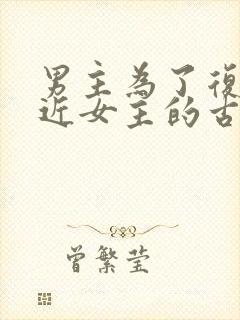 男主為了復
近女主的古
曾繁莹